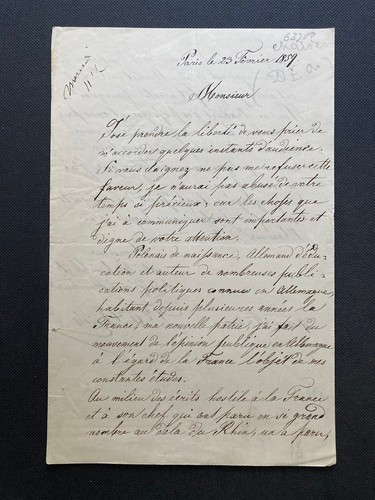 Paris le 23 Février 1859
Monsieur
J'ose prendre la liberté de vous prier de
m'accorder quelques instants d'audience.
Si vous daignez ne pas me refuser cette
faveur, je n'aurai pas abusé de votre
temps si précieux, car les choses que
j'ai à communiquer sont importantes et
digne de votre attention.
Polonais de naissance, Allemand d'édu-
cation et auteur de nombreuses publi-
cations politiques connus en Allemagne,
habitant depuis plusieures années la
France, ma nouvelle patrie, j'ai fait du
mouvement de l'opinion publique en Allemagne
à l'égard de la France l'objet de mes
constantes études.
Au milieu des écrits hostile à la France
et à son chef qui ont paru en si grand
nombre au delà du Rhin, un a paru,